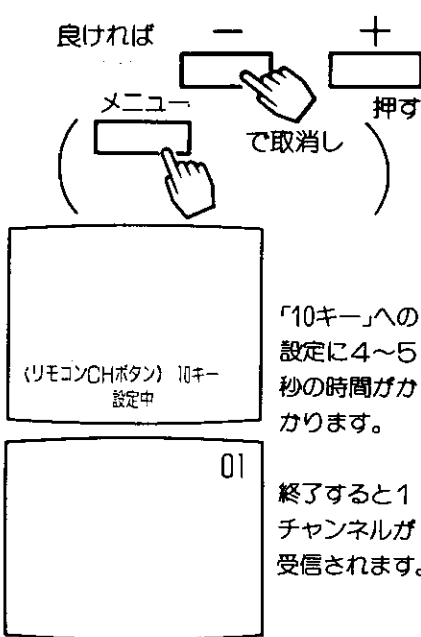 良ければ － ＋
押す
メニュー
で取消し
〈リモコンCHボタン〉 10キー
設定中
「10キー」への
設定に4〜5
秒の時間がか
かります。
01
終了すると1
チャンネルが
受信されます。